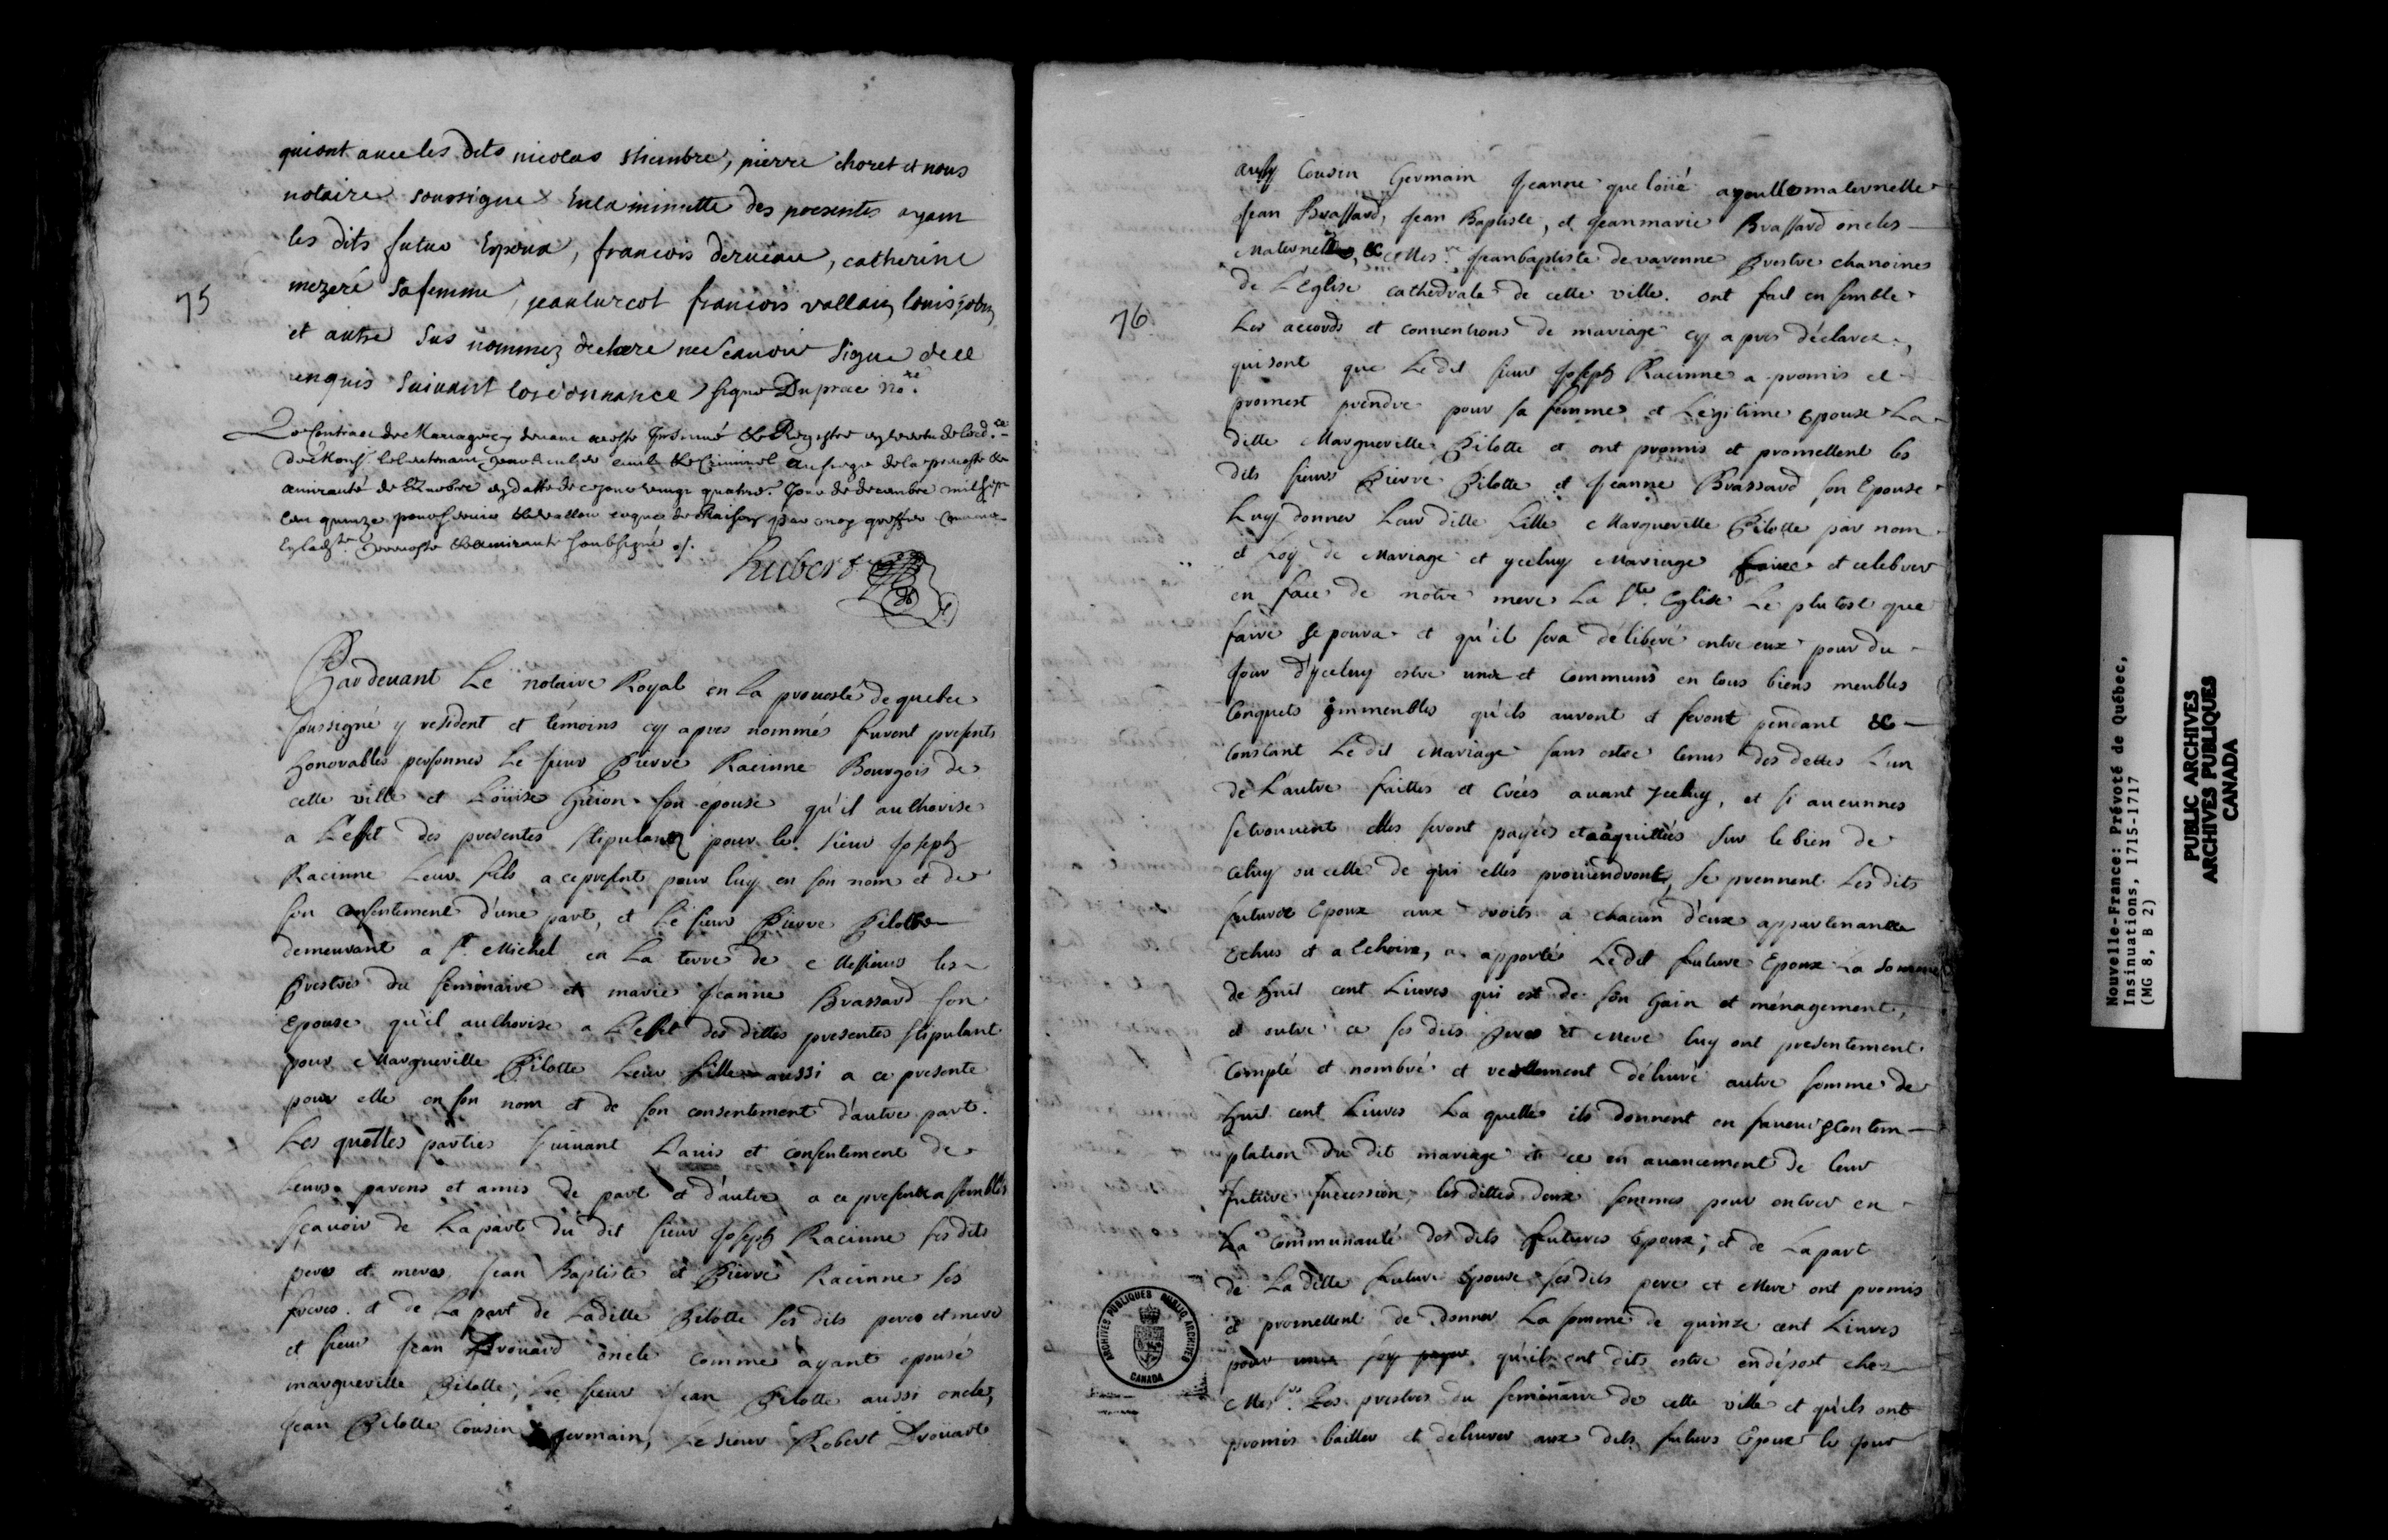 quiont avec les dits nicolas sthembre, pierre choret et nous
notaire soussigné En la minutte des presentes ayam
les dits futur Epoux, francois derneau, catherine
mezeré sa femme, jean turcot francois vallain louis jobin
et autre sus nommez déclaré ne scavoir signer de ce
enquis suivant lordonnance signé Duprac nore.
75
Le Contract de Mariage cy devant a esté Insinué & Registré en vertu de lord.ce
de Mons.r le lieutenant general civil & Criminel au siege de la prevosté &
amirauté de Quebec en datte de ce jour vingt quatre.e Jour de decembre mil sept
cent quinze pour servir & valloir en que de Raison par moy greffier Comme
En lad.te prevosté & amirauté soubsigné ./.
hubert
Pardevant Le notaire Royal en la prevosté de quebec
soussigné y resident et témoins cy apres nommés furent presents
honorables personnes Le sieur Pierre Racinne Bourgois de
cette ville et Loüise Guion son épouse qu'il authorise
a L'effet des presentes stipulant pour le sieur Joseph
Racinne Leur fils a ce present pour luy en son nom et de
son consentement d'une part, et Le sieur Pierre Pilotte
demeurant a St. Michel en La terre de Messieurs les
Prestre du seminaire et marie Jeanne Brassard son
Epouse qu'il authorise a L'effet des dittes presentes stipulant
pour Margueritte Pilotte Leur fille aussi a ce presente
pour elle en son nom et de son consentement d'autre part.
Les quelles parties suivant L'avis et consentement de
Leurs parens et amis de part et d'autre a ce presents assemblés
sçavoir de La part du dit sieur Joseph Racinne ses dits
pere et mere, Jean Baptiste et Pierre Racinne ses
freres. et de La part de Laditte Pilotte ses dits pere et mere
et sieur Jean Drouard oncle comme ayant epousé
margueritte Pilotte, Le sieur Jean Pilotte aussi oncle,
Jean Pilotte Cousin germain, Le sieur Robert Drouart
aussy Cousin Germain Jeanne queloüé ayeulle maternelle
Jean Brassard, Jean Baptiste, et Jean marie Brassard oncles
Maternels, & Mes.re Jean baptiste de varenne Prestre chanoines
de L'Eglise cathedrale de cette ville. ont fait en semble
76
Les accords et conventions de mariage cy apres déclarez,
qui sont que Le dit sieur Joseph Racinne a promis et
promest prendre pour sa femme et Légitime Epouse La
ditte Margueritte Pilotte et ont promis et promettent les
dits sieur Pierre Pilotte et Jeanne Brassard son Epouse
Luy donner Leur ditte fille Margueritte Pilotte par nom
et Loy de Mariage et yceluy Mariage faire et celebrer
en face de notre mere La Ste. Eglise Le plutost que
faire se poura et qu'il sera délibéré entre eux pour du
jour d'yceluy estre unis et Communs en tous biens meubles
Conquets Immeubles qu'ils auront et feront pendant &
Constant Le dit Mariage sans estre tenus des dettes L'un
de L'autre faittes et Créés avant yceluy, et si aucunnes
se trouvent elles seront payées et acquittées sur le bien de
celuy ou celle de qui elles proviendront, Se prennent Les dits
futures Epoux aux droits a chacun d'eux appartenants
Echus et a Echoire, a apporté Le dit future Epoux La Somme
de huit cent Livres qui est de son Gain et ménagement,
et outre ce ses dits Pere et Mere luy ont presentement
Compté et nombré et réellement délivré autre somme de
huit cent Livres La quelle ils donnent en faveur & Contem
plation du dit mariage et ce en avancement de leur
future succession, les dittes deux sommes pour entrer en
La Communauté des dits futures Epoux; et de La part
de La ditte Future Epouse ses dits pere et Mere ont promis
et promettent de donner La somme de quinze cent Livres
qu'ils ont dits estre en dépost chez
Mess.rs Les prestres du seminaire de cette ville et qu'ils ont
promis bailler et delivrer aux dits futurs Epoux le jour
ARCHIVES PUBLIQUES PUBLIC ARCHIVES
CANADA
Nouvelle-France: Prévoté de Québec,
Insinuations, 1715-1717
(MG 8, B 2)
PUBLIC ARCHIVES
ARCHIVES PUBLIQUES
CANADA